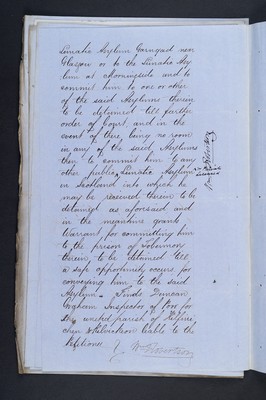 Lunatic Asylum Garngad near
Glasgow or to the Lunatic Asy
lum at Morningside and to
commit him to one or other
of the said Asylums therein
to be detained till further
order of Court, and in the
event of there being no room
in any of the said Asylums
then to commit him to any
other public Lunatic Asylum
in Scotland into which he
may be received therein to be
detained as aforesaid and
in the meantime grants
Warrant for committing him
to the prison of Tobermory
therein to be detained till
a safe opportunity occurs for
conveying him to the said
Asylum – Finds Duncan
Inspector of Poor for
the united parish of Kilfini
chen & Kilvickeon liable to the
Petitioner